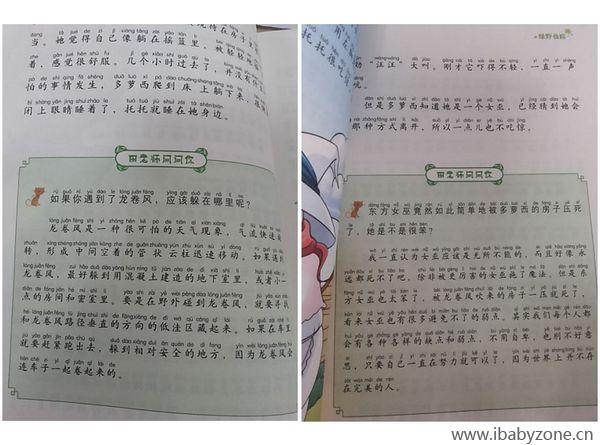 当。她觉得自己像躺在摇篮里，被轻轻
着，感觉很舒服。几个小时过去了，并没有什么
怕的事情发生，多萝西爬到床上躺下来，很
闭上眼睛睡着了，托托就睡在她身边。
田老师问问你
如果你遇到了龙卷风，应该躲在哪里呢？
龙卷风是一种很可怕的天气现象，气流快速
转，形成中间空着的管状云柱迅速移动，如果遇到
龙卷风，最好躲到用混凝土建造的地下室里，或者小一
点的房间和密室里，要是在野外碰到龙卷风，就要寻找
和龙卷风路径垂直的方向的低洼区藏起来，如果在车里
就要赶紧跑出去，躲到相对安全的地方，因为龙卷风会
连车子一起卷起来的。
绿野仙踪
“汪汪”大叫，刚才它吓得不轻，一直一声
吭。
但是多萝西知道她是一个女巫，已经猜到她会
那种方式离开，所以一点儿也不吃惊。
田老师问问你
东方女巫竟然如此简单地被多萝西的房子压死
了，她是不是很笨？
我一直认为女巫应该是无所不能的，而且好像永
远都死不了吧，除非被更厉害的女巫施了魔法，但是东
方女巫也太笨了，被龙卷风吹来的房子一压就死了，
看来女巫也有很多避免不了的弱点。其实我们每个人都
会有各种各样的缺点和弱点，不用自卑，也别不好意
思，只要自己一直在努力就可以了，因为世界上并不存
在完美的人。
www.ibabyzone.cn